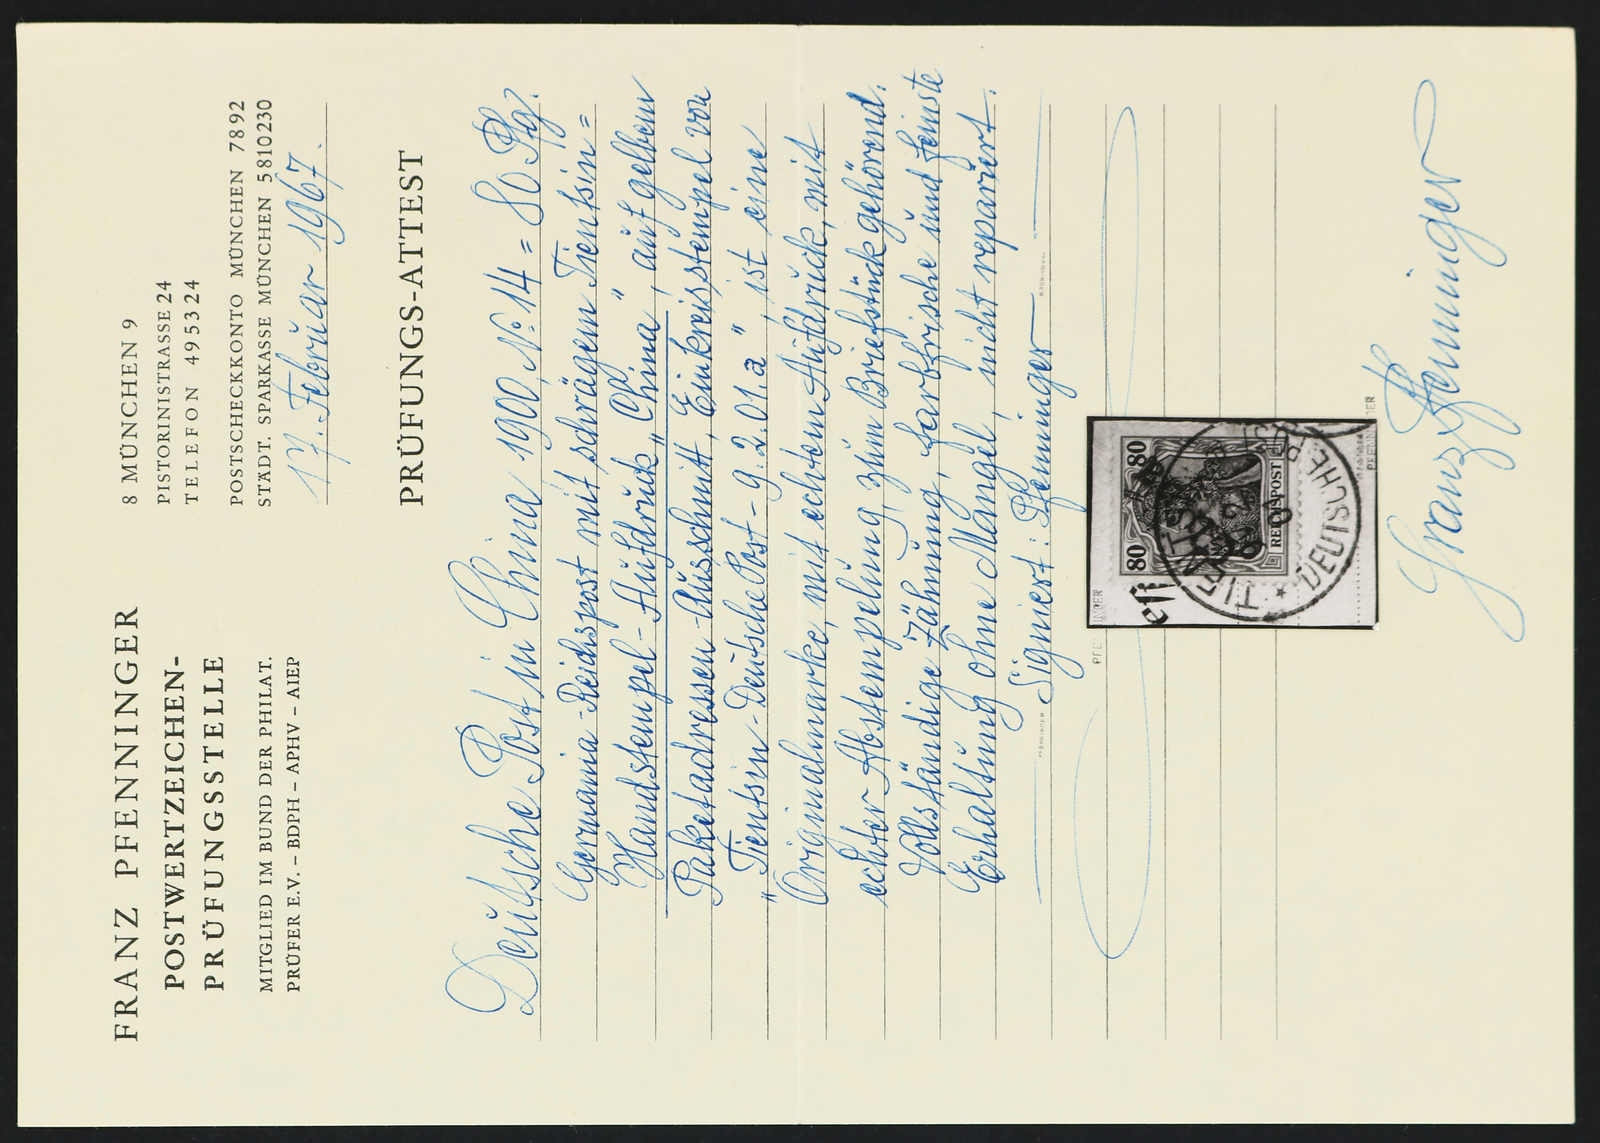 FRANZ PFENNINGER
POSTWERTZEICHEN-
PRÜFUNGSSTELLE
MITGLIED IM BUND DER PHILAT.
PRÜFER E.V. – BDPH – APHV – AIEP
8 MÜNCHEN 9
PISTORINISTRASSE 24
TELEFON 495324
POSTSCHECKKONTO MÜNCHEN 7892
STÄDT. SPARKASSE MÜNCHEN 5810230
17. Februar 1967.
PRÜFUNGS-ATTEST
Deutsche Post in China 1900, No 14 = 80 Pfg.
Germania-Reichspost mit schrägem Tientsin=
Handstempel-Aufdruck „China", auf gelbem
Paketadressen-Ausschnitt, Einkreisstempel von
"Tientsin-Deutsche Post - 9.2.01. a", ist eine
Originalmarke, mit echtem Aufdruck, mit
echter Abstempelung, zum Briefstück gehörend.
Vollständige Zähnung, farbfrische und feinste
Erhaltung ohne Mängel, nicht repariert.
Signiert: Pfenninger
PFENNINGER
80
80
REICHSPOST
TIENTSIN
DEUTSCHE POST
Franz Pfenninger